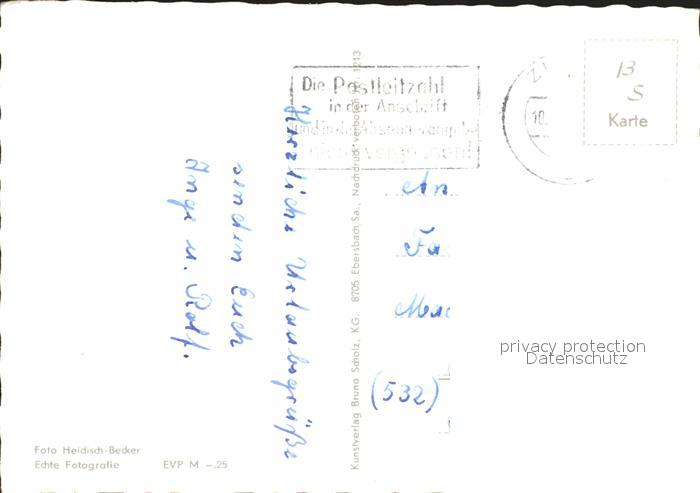 Die Postleitzahl
in der Anschrift
und in der Absenderangabe
nicht vergessen!
10.
B
S
Karte
Herzliche Urlaubsgrüße
senden Euch
Inge u. Rolf.
An
Fa
(532)
privacy protection
Datenschutz
Kunstverlag Bruno Scholz, KG. 8705 Ebersbach/Sa., Nachdruck verboten 1213
Foto Heidisch-Becker
Echte Fotografie EVP M –.25